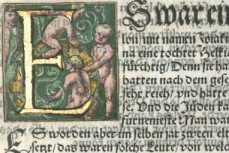 E Swar ein
lon/mit namen Joiaki
na eine tochter Helki
fürchtig/ Denn sie ha
hatten nach dem gese
sehr reich/ vnd hatte
se. Vnd die Jüden ka
fürnemeste Man war
ES worden aber im selben jar zween elt
setzt/ das waren solche Leute/ von welch